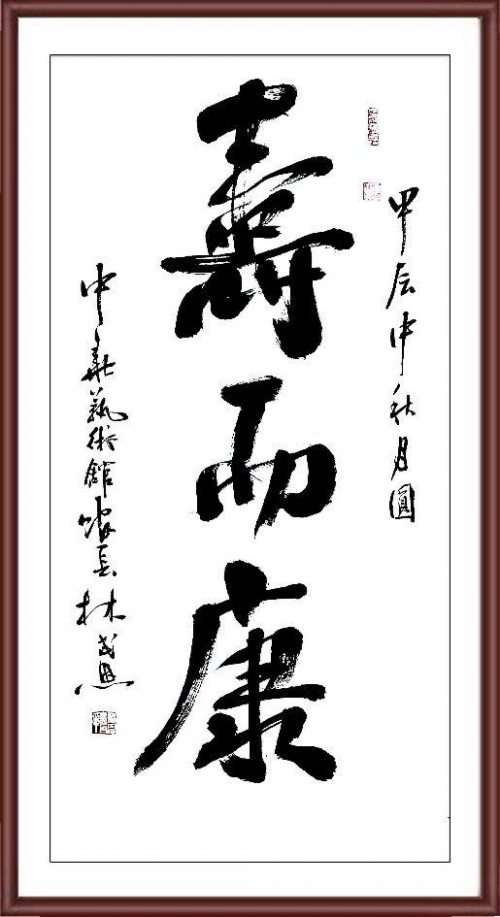 甲辰中秋月圓
壽而康
中華藝術館館長林